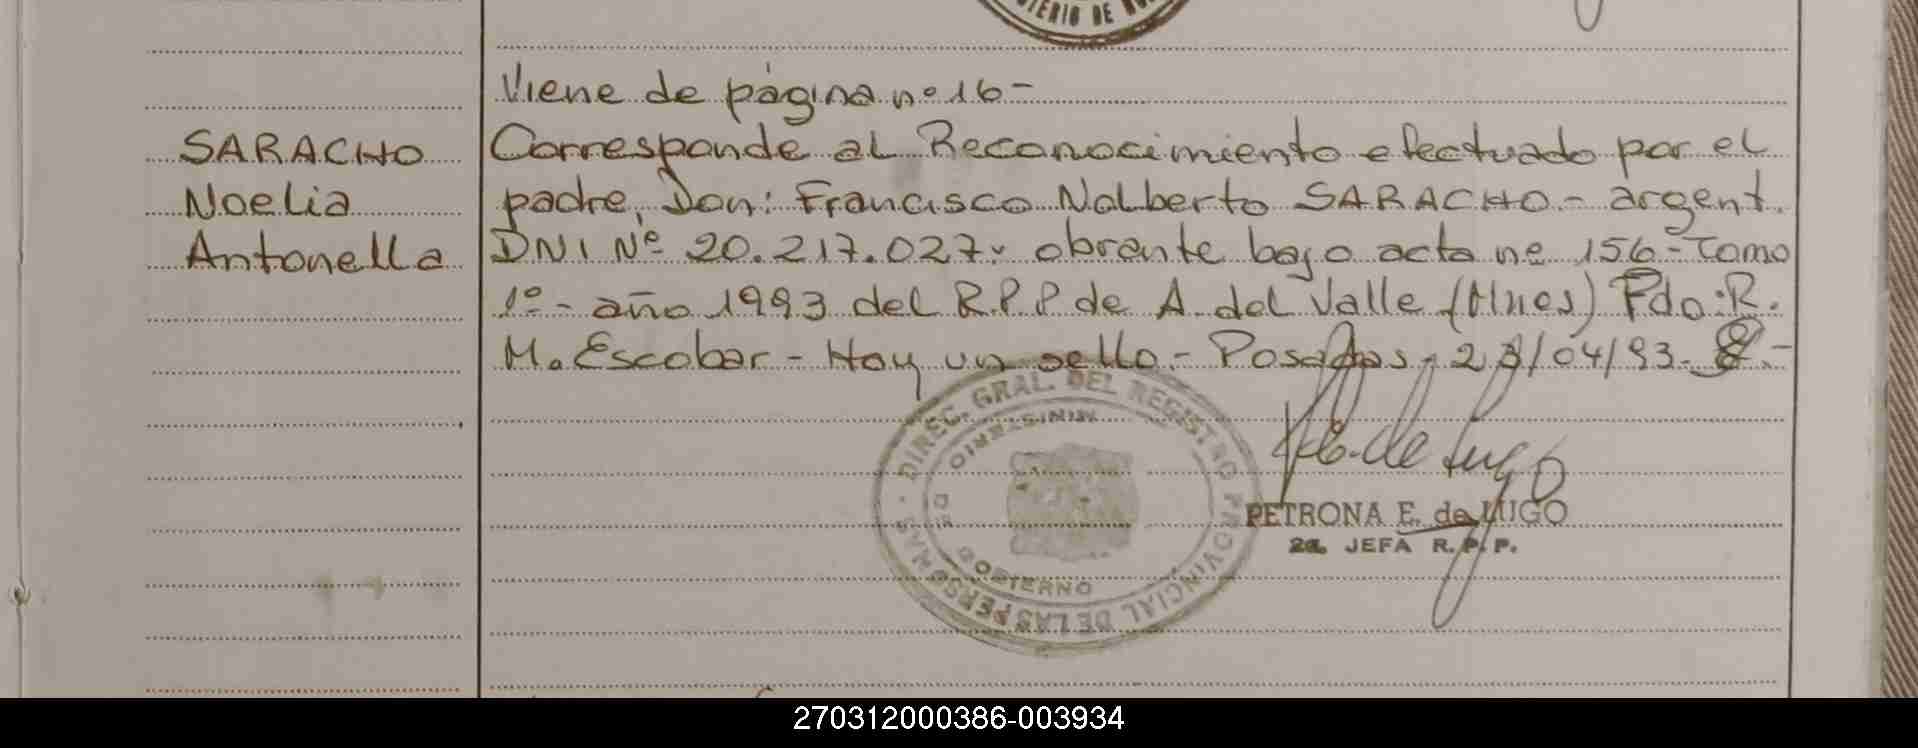 Viene de página nº 16-
SARACHO
Noelia
Antonella
Corresponde al Reconocimiento efectuado por el
padre, Don: Francisco Nalberto SARACHO.- argent.
DNI Nº 20.217.027. obrante bajo acta nº 156- Tomo
1º- año 1993 del R.P.P de A. del Valle (Mnes) Fdo: R.
M. Escobar - Hay un sello.- Posadas, /04/93.
DIREC. GRAL. DEL REGISTRO PROVINCIAL DE LAS PERSONAS
MINISTERIO DE GOBIERNO
PETRONA E. de LUGO
2a. JEFA R.P.P.
270312000386-003934